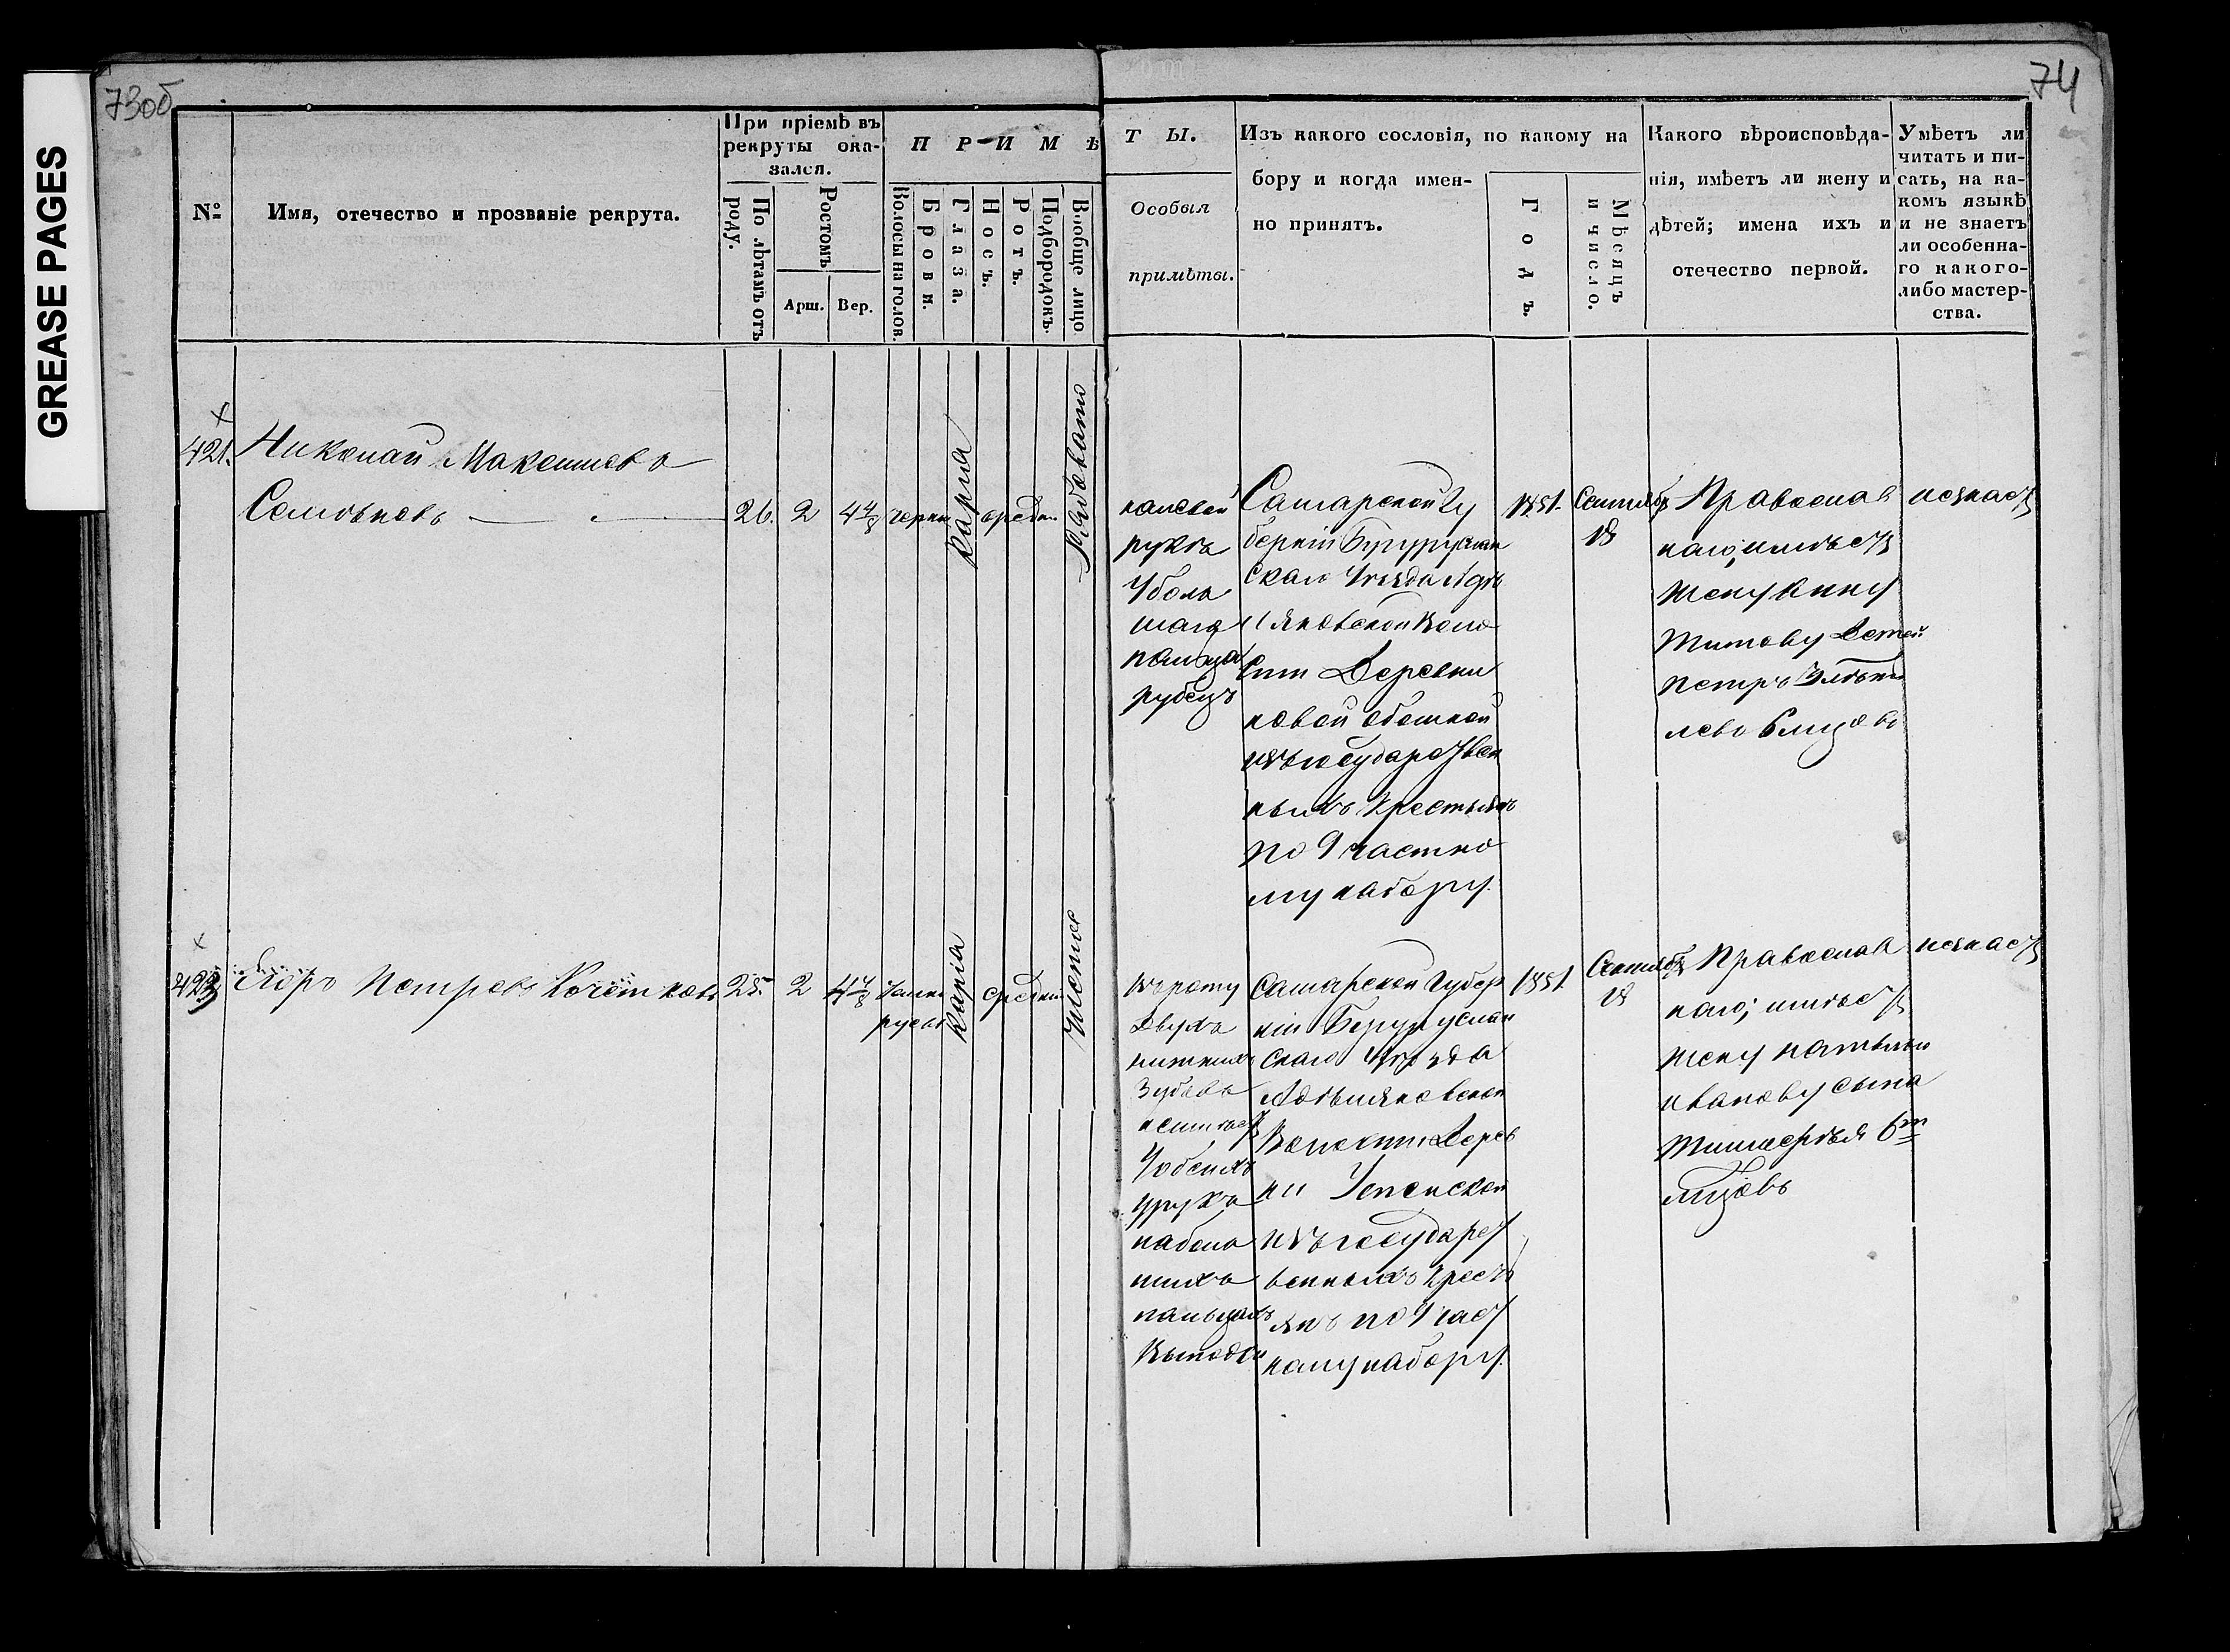 GREASE PAGES
73об
74
№
Имя, отечество и прозваніе рекрута.
При пріемѣ въ
рекруты ока-
зался.
По лѣтамъ отъ
роду.
Ростомъ
Арш.
Вер.
ПРИМѢ
Волосы на голов.
Брови.
Глаза.
Носъ.
Ротъ.
Подбородокъ.
Вообще лицо
ТЫ.
Особыя
примѣты.
Изъ какого сословія, по какому на
бору и когда имен-
но принятъ.
Годъ.
Мѣсяцъ
и число.
Какого вѣроисповѣда-
нія, имѣетъ ли жену и
дѣтей; имена ихъ и
отечество первой.
Умѣетъ ли
читать и пи-
сать, на ка-
комъ языкѣ
и не знаетъ
ли особенна-
го какого-
либо мастер-
ства.
421.
Николай Максимовъ
26. 2 4 4/8 черн карія средн. Рябовато
на левой
руке
У боль
шаго
пальца
рубецъ
Самарской Гу
берніи Бугуруслан
скаго Уезда
Волос
сти Деревни
новой
изъ государствен
ныхъ Крестьянъ
по 9 частно
му набору.
1851. Сентября
18
Православ
наго, имѣетъ
жену Анну
Титову Детей
Петръ
незнаетъ
Егоръ Петровъ Кочетковъ 25. 2 4 4/8
русые карія средній чистое
Во рту
Двухъ
нижнихъ
Зубовъ
неимѣетъ
У обеихъ
рукъ
на боль
шихъ
пальцахъ
Самарской Губер
ніи Бугуруслан
скаго Уезда
Волости Дерев
ни Успенской
изъ государст
венныхъ Крест
янъ по 9 част
ному набору.
1851. Сентября
18
Православ
наго; имѣетъ
жену Наталью
Иванову сына
Тимофея 6 м
незнаетъ